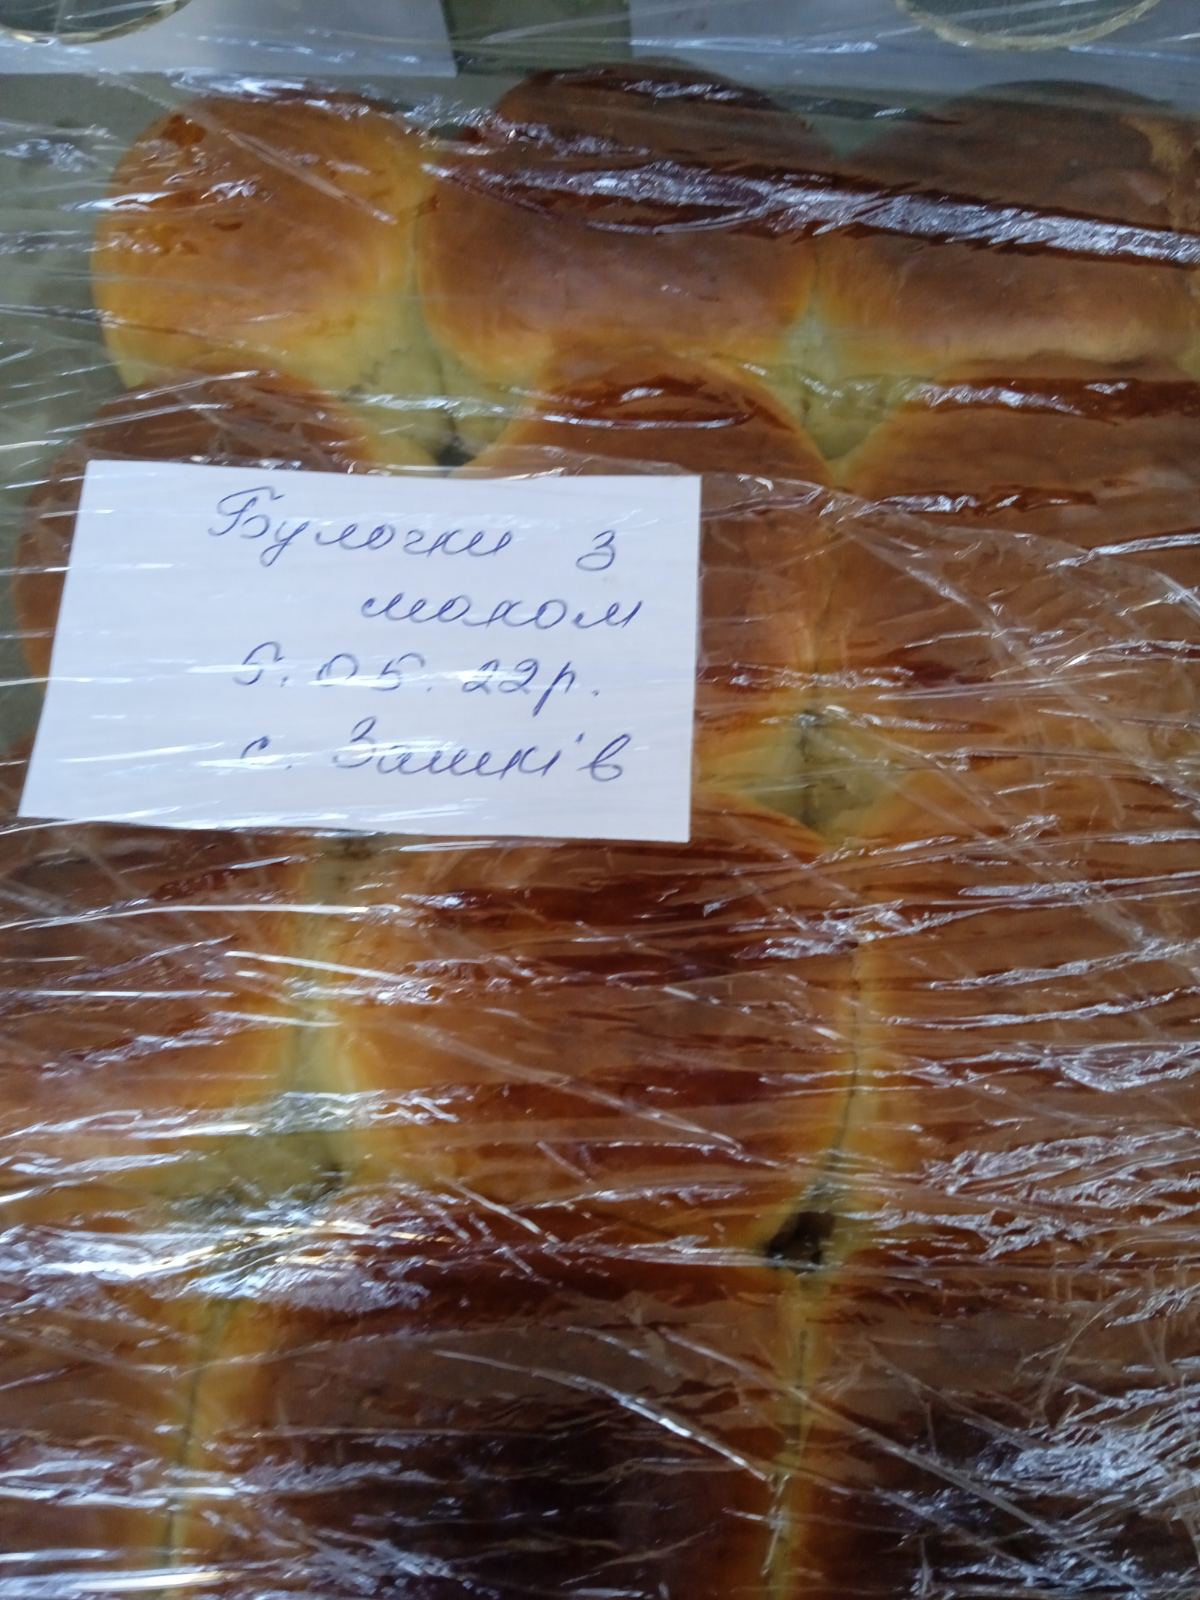 Булочки з
маком
5.05.22р.
с. Зашків